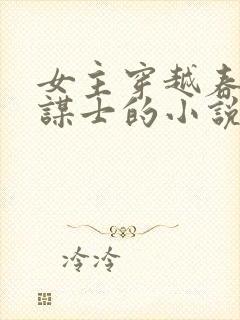 女主穿越春
謀士的小説
冷冷